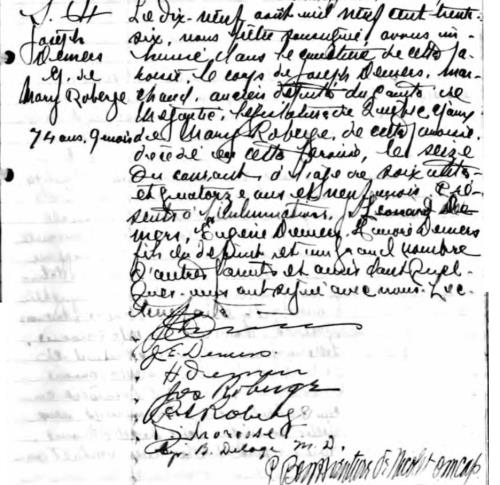 S. 47
Joseph
Demers
Ep. de
Mary Roberge
74 ans, 9 mois
Le dix-neuf août mil neuf cent trente-
six, nous prêtre soussigné, avons in-
humé dans le cimetière de cette pa-
roisse, le corps de Joseph Demers, mar-
chand, ancien député du comté de
Mégantic, Législature de Québec, époux
de Mary Roberge, de cette paroisse,
décédé en cette paroisse, le seize
du courant, à l'âge de soixante
et quatorze ans et neuf mois. Pré-
sents à l'inhumation, Léonard De-
mers, Eugène Demers, Honoré Demers
fils du défunt et un grand nombre
d'autres parents et amis dont quel-
ques-uns ont signé avec nous. Lec-
ture faite.
Demers
J. E. Demers
H Demers
Roberge
Roberge
Morisset
m. D